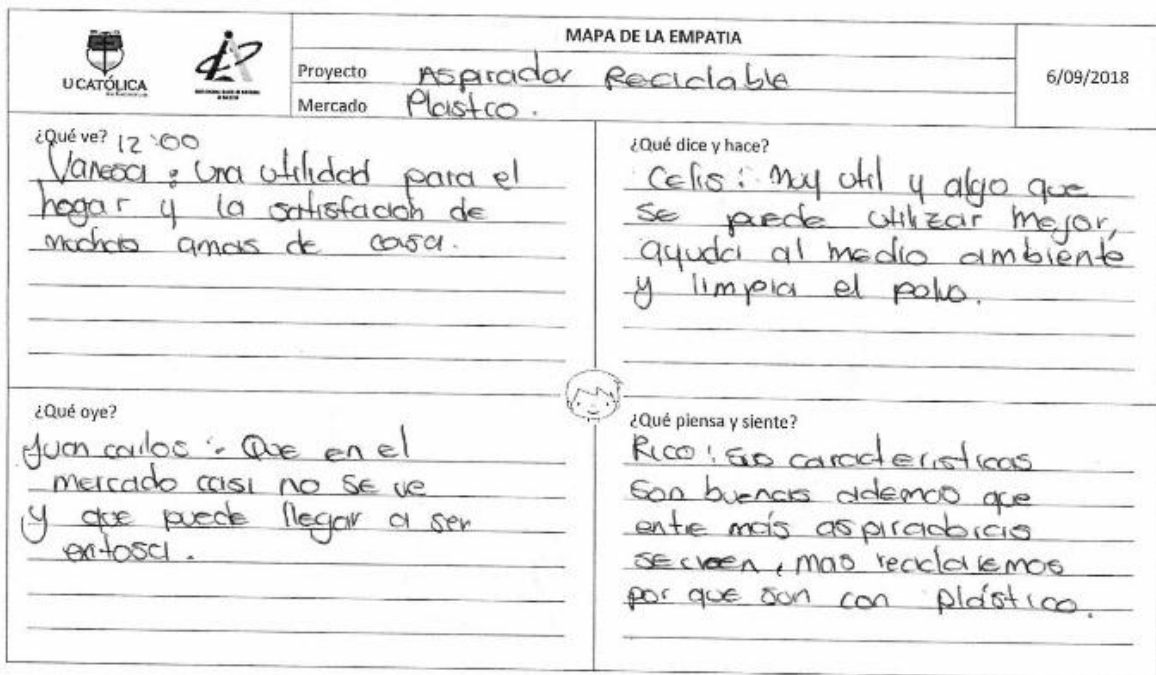 U CATÓLICA
MAPA DE LA EMPATIA
Proyecto Aspirador Reciclable
Mercado Plastco.
6/09/2018
¿Qué ve? 12:00
Vanesa: Una utilidad para el
hogar y la satisfacion de
muchas amas de casa.
¿Qué dice y hace?
Celis: Muy util y algo que
se puede utilizar mejor,
ayuda al medio ambiente
y limpia el polvo.
¿Qué oye?
Juan carlos: Que en el
mercado casi no se ve
y que puede llegar a ser
exitosa.
¿Qué piensa y siente?
Rico: Sus caracteristicas
son buenas ademas que
entre más aspiradoras
se creen, mas reciclaremos
por que son con plástico.